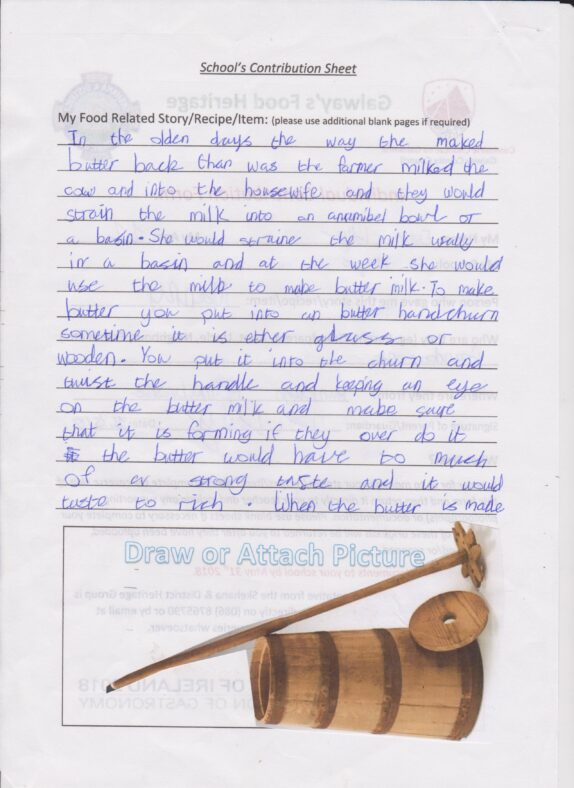 School's Contribution Sheet
My Food Related Story/Recipe/Item: (please use additional blank pages if required)
In the olden days the way the maked
butter back than was the farmer milked the
cow and into the housewife and they would
strain the milk into an anumibel bowl or
a basin. She would straine the milk usally
in a basin and at the week she would
use the milk to make butter milk. To make
butter you put into an butter handchurn
sometime it is ether glass or
wooden. You put it into the churn and
twist the handle and keeping an eye
on the butter milk and make sure
that it is forming if they over do it
the butter would have to much
of er strong taste and it would
taste to rich. When the butter is made
Draw or Attach Picture